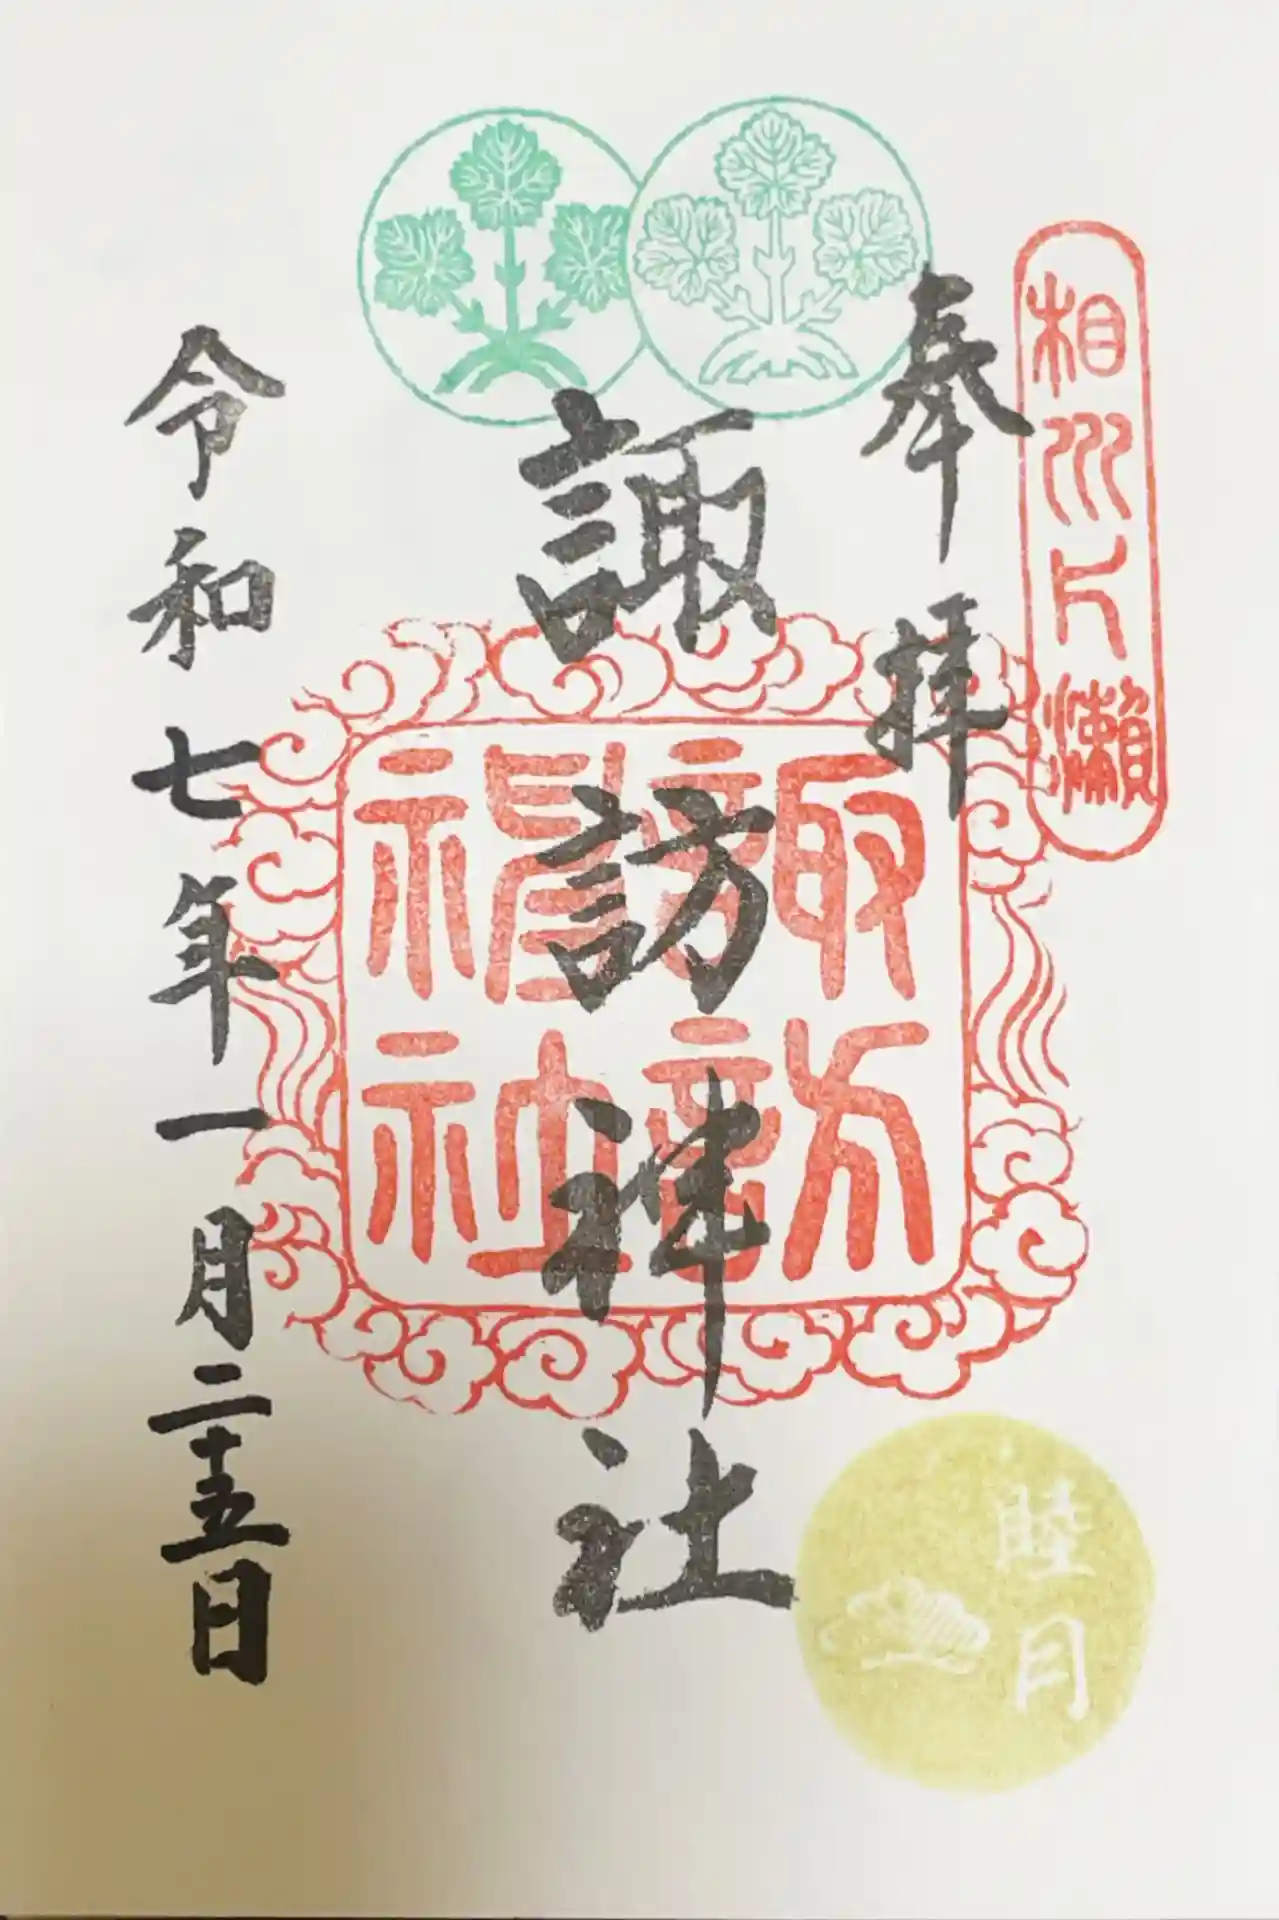 相州片瀬
奉拝
諏訪神社
諏訪
神社
睦月
令和七年一月二十五日